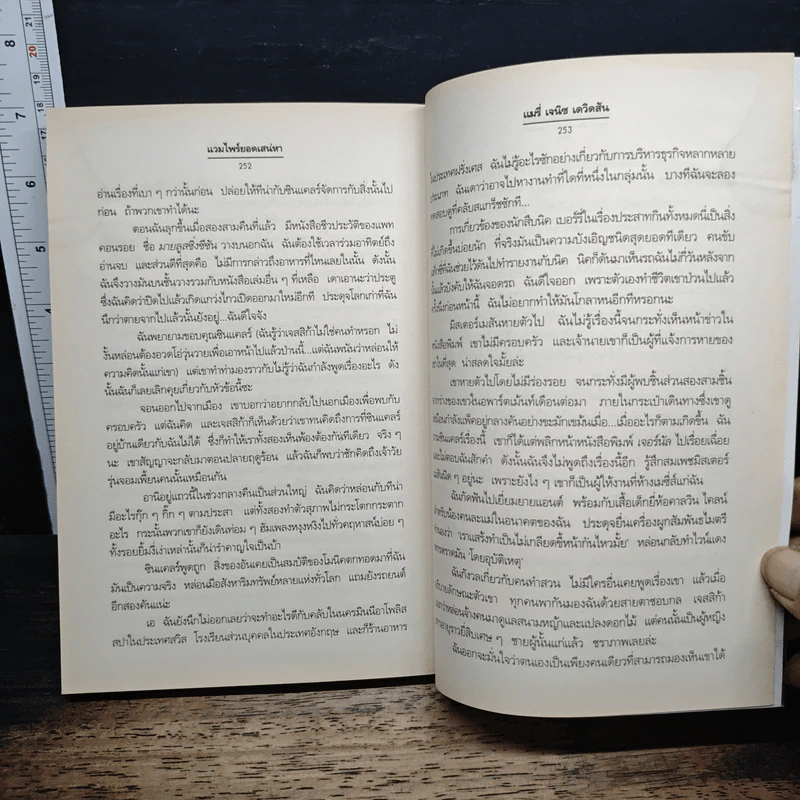 แวมไพร์ยอดเสน่หา
252
อ่านเรื่องที่เบา ๆ กว่านั้นก่อน ปล่อยให้ทีน่ากับซินแคลร์จัดการกับสิ่งนั้นไป
ก่อน ถ้าพวกเขาทำได้นะ
ตอนฉันลุกขึ้นเมื่อสองสามคืนที่แล้ว มีหนังสือชีวประวัติของแพท
คอนรอย ชื่อ มายลูสซิ่งซีซัน วางบนอกฉัน ฉันต้องใช้เวลาร่วมอาทิตย์ถึง
อ่านจบ และส่วนดีที่สุดคือ ไม่มีการกล่าวถึงอาหารที่ไหนเลยในนั้น ดังนั้น
ฉันจึงวางมันบนชั้นวางรวมกับหนังสือเล่มอื่น ๆ ที่เหลือ เดาเอานะว่าประตู
ซึ่งฉันคิดว่าปิดไปแล้วเกิดแกว่งไกวเปิดออกมาใหม่อีกที ประตูจุโลกเก่าที่ฉัน
นึกว่าตายจากไปแล้วนั้นยังอยู่...ฉันดีใจจัง
ฉันพยายามขอบคุณซินแคลร์ (ฉันรู้ว่าเจสสิก้าไม่ใช่คนทำหรอก ไม่
งั้นหล่อนต้องอวดโอ่วุ่นวายเพื่อเอาหน้าไปแล้วป่านนี้...แต่ฉันพนันว่าหล่อนให้
ความคิดนั้นแก่เขา) แต่เขาทำท่ามองราวกับไม่รู้ว่าฉันกำลังพูดเรื่องอะไร ดัง
นั้นฉันก็เลยเลิกคุยเกี่ยวกับหัวข้อนี้ซะ
จอนออกไปจากเมือง เขาบอกว่าอยากกลับไปนอกเมืองเพื่อพบกับ
ครอบครัว แต่ฉันคิด และเจสสิก้าก็เห็นด้วยว่าเขาทนคิดถึงการที่ซินแคลร์
อยู่บ้านเดียวกับฉันไม่ได้ ซึ่งก็ทำให้เราทั้งสองเห็นพ้องต้องกันทีเดียว จริง ๆ
นะ เขาสัญญาจะกลับมาตอนปลายฤดูร้อน แล้วฉันก็พบว่าชักคิดถึงเจ้าวัย
รุ่นจอมเพี้ยนคนนั้นเหมือนกัน
อานีอยู่แถวนี้ในช่วงกลางคืนเป็นส่วนใหญ่ ฉันคิดว่าหล่อนกับทีน่า
มีอะไรกุ๊ก ๆ กิ๊ก ๆ ตามประสา แต่ทั้งสองทำตัวสุภาพไม่กระโตกกระตาก
อะไร กระนั้นพวกเขาก็ยังเดินท่อม ๆ ฮัมเพลงหงุงหงิงไปทั่วคฤหาสน์บ่อย ๆ
ทั้งรอยยิ้มงี่เง่าเหล่านั้นก็น่ารำคาญใจเป็นบ้า
ซินแคลร์พูดถูก สิ่งของอันเคยเป็นสมบัติของโมนิคตกทอดมาที่ฉัน
มันเป็นความจริง หล่อนมีอสังหาริมทรัพย์หลายแห่งทั่วโลก แถมยังรถยนต์
อีกสองคันแน่ะ
เอ ฉันยังนึกไม่ออกเลยว่าจะทำอะไรดีกับคลับในนครมินนีอาโพลิส
สปาในประเทศสวิส โรงเรียนส่วนบุคคลในประเทศอังกฤษ และก็ร้านอาหาร
แมรี่ เจนิซ เดวิดสัน
253
ในประเทศฝรั่งเศส ฉันไม่รู้อะไรซักอย่างเกี่ยวกับการบริหารธุรกิจหลากหลาย
ประเภท ฉันเดาว่าอาจไปหางานทำที่ใดที่หนึ่งในกลุ่มนั้น บางทีฉันจะลอง
ทดสอบดูที่คลับสแกรี่ชซักที...
การเกี่ยวข้องของนักสืบนิค เบอร์รี่ในเรื่องประสาทกินทั้งหมดนี่เป็นสิ่ง
ที่ไม่เกิดขึ้นบ่อยนัก ที่จริงมันเป็นความบังเอิญชนิดสุดยอดทีเดียว คนขับ
ช่วยไว้ดันไปทำรายงานกับนิค นิคก็ดันมาเห็นรถฉันไม่กี่วันหลังจาก
นั้นแล้วบังคับให้ฉันจอดรถ ฉันดีใจออก เพราะตัวเองทำชีวิตเขาป่วนไปแล้ว
ครั้งนึงก่อนหน้านี้ ฉันไม่อยากทำให้มันโกลาหนอีกทีหรอกนะ
มิสเตอร์เมสันหายตัวไป ฉันไม่รู้เรื่องนี้จนกระทั่งเห็นหน้าข่าวใน
หนังสือพิมพ์ เขาไม่มีครอบครัว และเจ้านายเขาก็เป็นผู้ที่แจ้งการหายของ
เขาในที่สุด น่าสลดใจมั้ยล่ะ
เขาหายตัวไปโดยไม่มีร่องรอย จนกระทั่งมีผู้พบชิ้นส่วนสองสามชิ้น
จากร่างของเขาในอพาร์ตเม้นท์เดือนต่อมา ภายในกระเป๋าเดินทางซึ่งเขาดู
เหมือนกำลังแพ็คอยู่กลางคันอย่างขะมักเขม้นเมื่อ...เมื่ออะไรก็ตามเกิดขึ้น ฉัน
ถามซินแคลร์เรื่องนี้ เขาก็ได้แต่พลิกหน้าหนังสือพิมพ์ เจอร์นัล ไปเรื่อยเฉื่อย
และไม่ตอบฉันสักคำ ดังนั้นฉันจึงไม่พูดถึงเรื่องนี้อีก รู้สึกสมเพชมิสเตอร์
เมสันนิด ๆ อยู่นะ เพราะยังไง ๆ เขาก็เป็นผู้ให้งานที่ห้างเมซี่ส์แก่ฉัน
ฉันกัดฟันไปเยี่ยมยายแอนต์ พร้อมกับเสื้อเด็กยี่ห้อคาลวิน ไคลน์
สำหรับน้องคนละแม่ในอนาคตของฉัน ประดุจยื่นเครื่องผูกสัมพันธไมตรี
'เราแสร้งทำเป็นไม่เกลียดขี้หน้ากันไหวมั้ย' หล่อนกลับทำไวน์แดง
'โดยอุบัติเหตุ'
ฉันกังวลเกี่ยวกับคนทำสวน ไม่มีใครอื่นเคยพูดเรื่องเขา แล้วเมื่อ
อธิบายลักษณะตัวเขา ทุกคนพากันมองฉันด้วยสายตาชอบกล เจสสิก้า
บอกว่าหล่อนจ้างคนมาดูแลสนามหญ้าและแปลงดอกไม้ แต่คนนั้นเป็นผู้หญิง
สาวอายุราวยี่สิบเศษ ๆ ชายผู้นั้นแก่แล้ว ชราภาพเลยล่ะ
ฉันออกจะมั่นใจว่าตนเองเป็นเพียงคนเดียวที่สามารถมองเห็นเขาได้